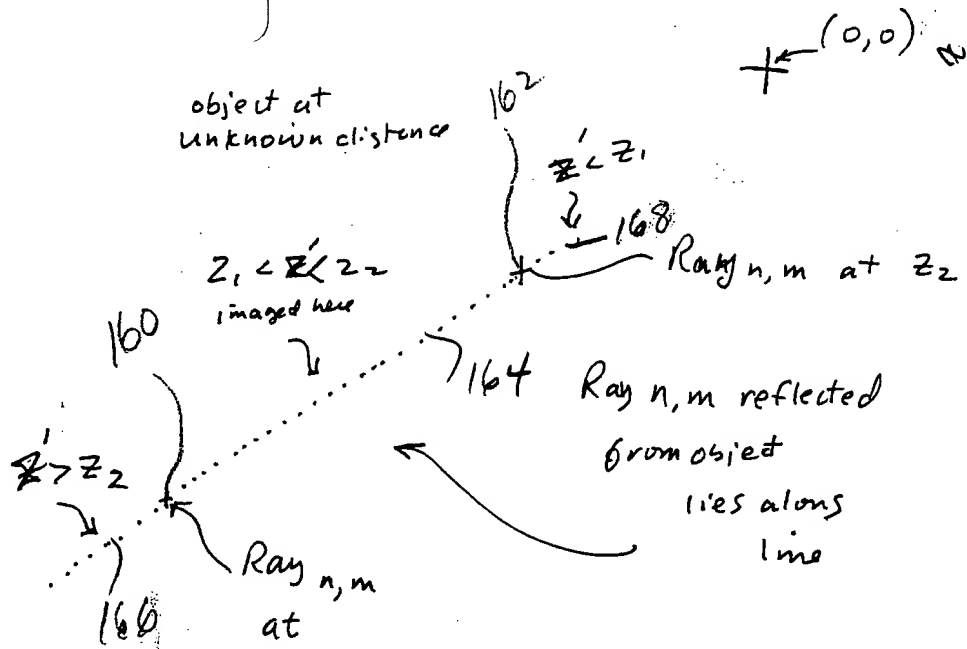 (0,0)
object at
unknown distance
162
z' < z1
168
Ray n,m at z2
z1 < z' < z2
imaged here
160
164
Ray n,m reflected
from object
lies along
line
z' > z2
Ray n,m
at
166